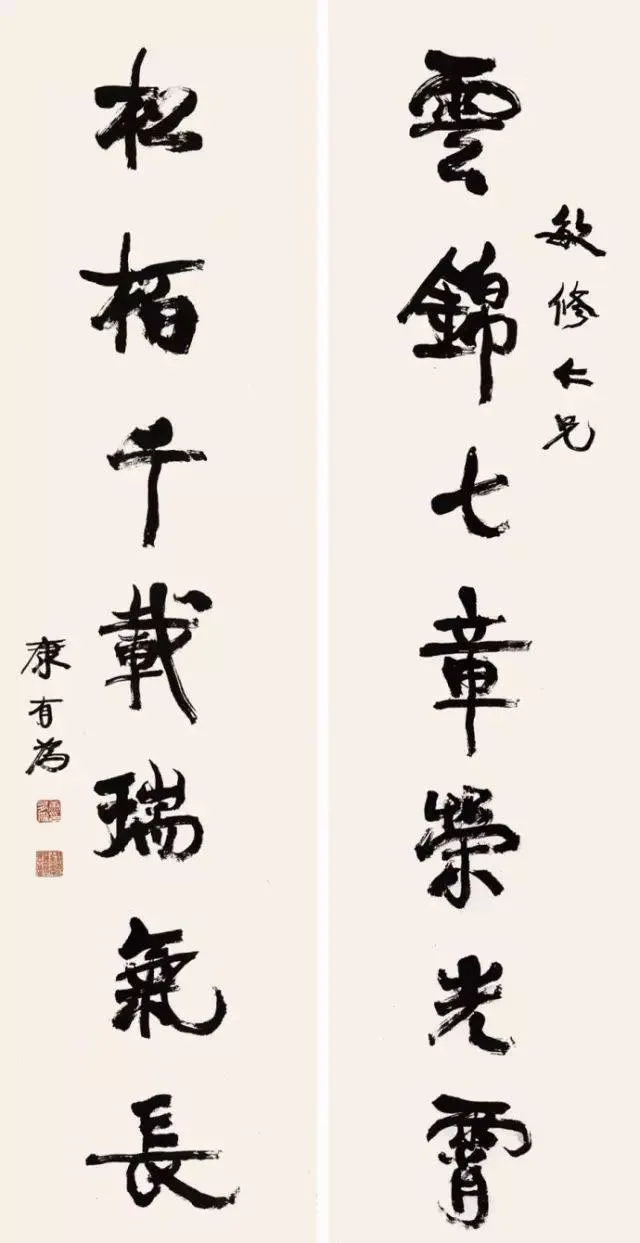 敏修仁兄
雲錦七章榮光霄
松柏千載瑞氣長
康有為